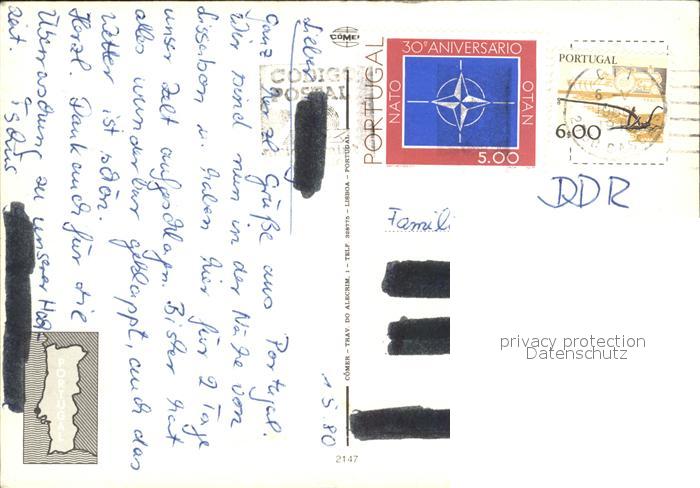 1.5.80
Liebe
Ganz herzl. Grüße aus Portugal.
Wir sind nun in der Nähe von
Lissabon u. haben hier für 2 Tage
unser Zelt aufgeschlagen. Bisher hat
alles wunderbar geklappt, auch das
Wetter ist schön.
Herzl. Dank auch für die
Überraschung zu unserer Hoch-
zeit.
CÓMER
CÓDIGO
POSTAL
PORTUGAL
30º ANIVERSARIO
NATO
OTAN
5.00
PORTUGAL
6$00
DDR
Famili
privacy protection
Datenschutz
CÓMER - TRAV. DO ALECRIM, 1 - TELF 328775 - LISBOA - PORTUGAL
PORTUGAL
2147